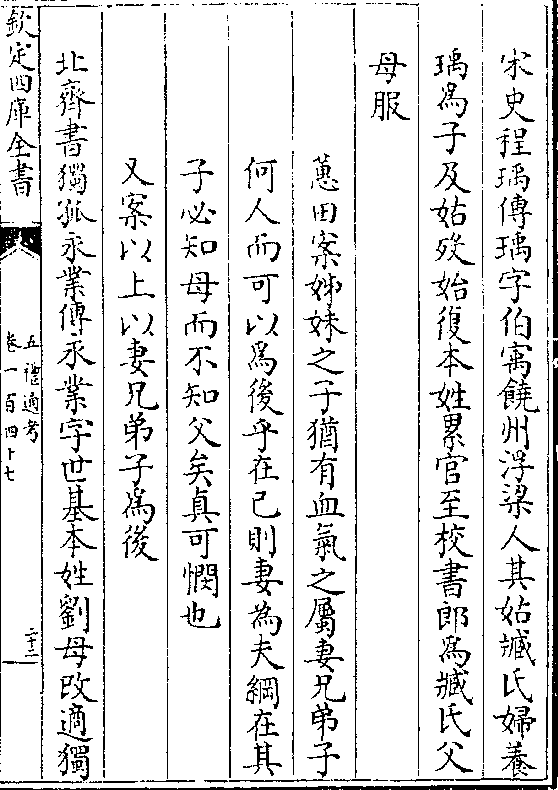 宋史程瑀傳瑀字伯㝢饒州浮梁人其姑臧氏婦養
瑀為子及姑歿始復本姓累官至校書郎為臧氏父
母服
蕙田案姊妹之子猶有血氣之屬妻兄弟子
何人而可以為後乎在已則妻為夫綱在其
子必知母而不知父矣真可憫也
又案以上以妻兄弟子為後
北齊書獨孤永業傳永業字世基本姓劉母改適獨
欽定四庫全書
五禮通考
卷一百四十七
二十三